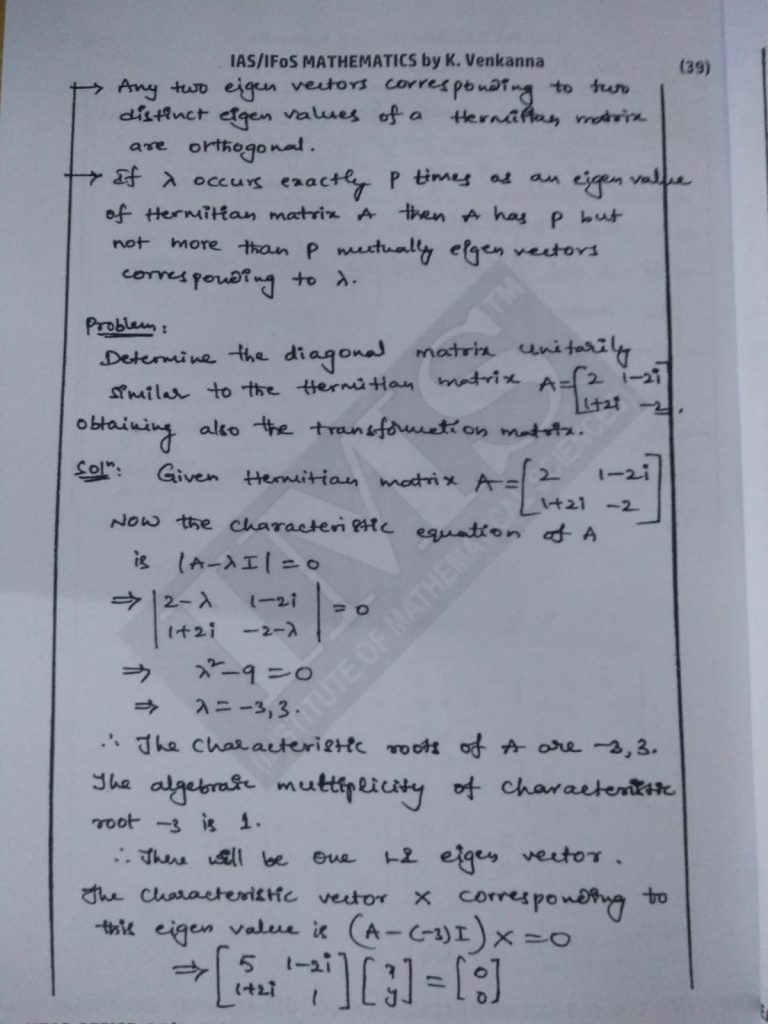 IAS/IFoS MATHEMATICS by K. Venkanna (39)
→ Any two eigen vectors corresponding to two
distinct eigen values of a Hermitian matrix
are orthogonal.
→ If λ occurs exactly p times as an eigen value
of Hermitian matrix A then A has p but
not more than p mutually eigen vectors
corresponding to λ.
Problem:
Determine the diagonal matrix unitarily
similar to the Hermitian matrix A=[2 1-2i
1+2i -2],
obtaining also the transformation matrix.
Solⁿ: Given Hermitian matrix A=[2 1-2i
1+2i -2]
Now the characteristic equation of A
is |A-λI|=0
⇒ |2-λ 1-2i
1+2i -2-λ| = 0
⇒ λ²-9=0
⇒ λ=-3,3.
∴ The characteristic roots of A are -3,3.
The algebraic multiplicity of characteristic
root -3 is 1.
∴ There will be one LI eigen vector.
The characteristic vector X corresponding to
this eigen value is (A-(-3)I)X=0
⇒ [5 1-2i
1+2i 1] [x
y] = [0
0]
IMS™
INSTITUTE OF MATHEMATICAL SCIENCES